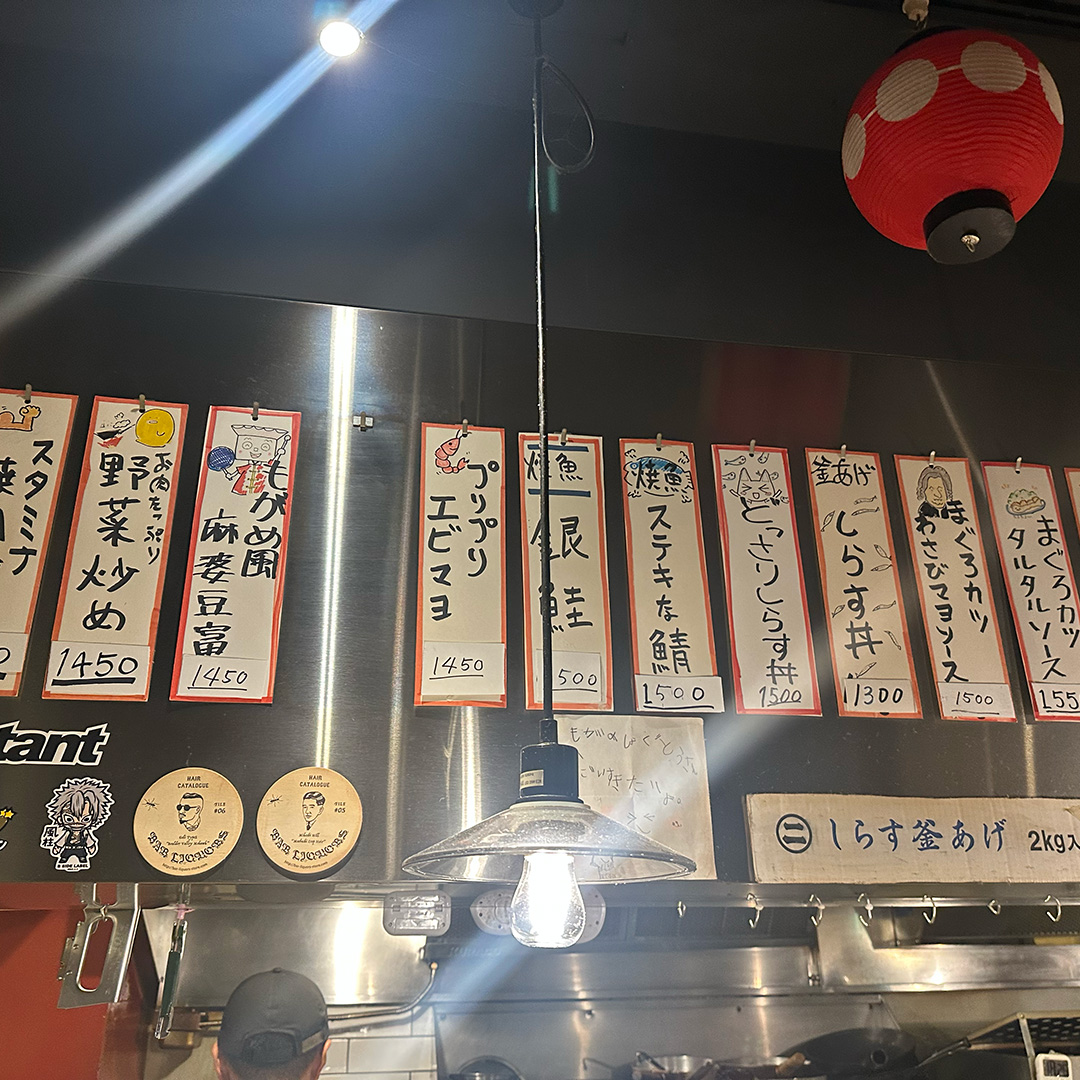 スタミナ
野菜炒め
お肉たっぷり
1450
もがめ風
麻婆豆富
1450
プリプリ
エビマヨ
1450
焼魚
銀鮭
500
焼魚
ステキな鯖
1500
どっさりしらす丼
1500
釜あげ
しらす丼
1300
まぐろカツ
わさびマヨソース
1500
まぐろカツ
タルタルソース
155
tant
風柱
HAIR
CATALOGUE
STYLE
#06
BAR LIQUORS
HAIR
CATALOGUE
STYLE
#05
BAR LIQUORS
しらす釜あげ 2kg入